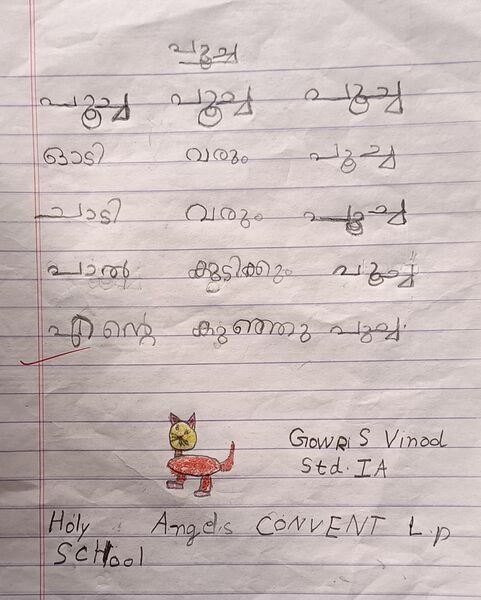 പൂച്ച
പൂച്ച പൂച്ച പൂച്ച
ഓടി വരും പൂച്ച
ചാടി വരും പൂച്ച
പാൽ കുടിക്കും പൂച്ച
എന്റെ കുഞ്ഞു പൂച്ച.
GowRi S Vinod
Std. IA
Holy Angels CONVENT L.p
SCHool